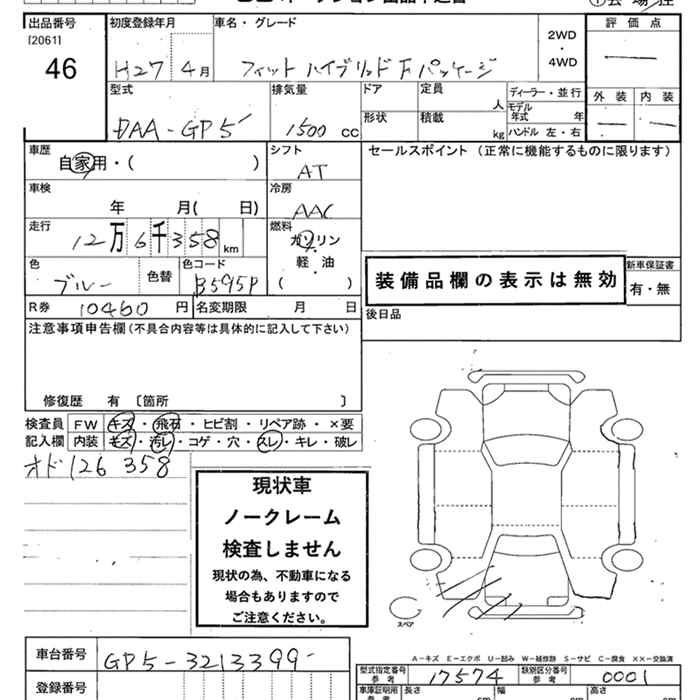 出品番号 初度登録年月 車名・グレード 評価点
[2061]
46
H27 4月 フィット ハイブリッド Fパッケージ
2WD
・
4WD
型式 排気量 ドア 定員 人 ディーラー・並行 外装 内装
モデル年式 年
DAA-GP5 1500 CC 形状 積載 kg ハンドル 左・右
車歴 シフト セールスポイント (正常に機能するものに限ります)
自家用・( ) AT
車検 冷房
年 月( 日) AAC
走行 燃料
12万6千358km ガソリン
軽・油
( )
色 色替 色コード
ブルー B595P
装備品欄の表示は無効
新車保証書
有・無
R券 10460円 名変期限 月 日
後日品
注意事項申告欄(不具合内容等は具体的に記入して下さい)
修復歴 有 〔箇所 〕
検査員 FW キズ・飛石・ヒビ割・リペア跡・×要
記入欄 内装 キズ・汚レ・コゲ・穴・スレ・キレ・破レ
オド126358
現状車
ノークレーム
検査しません
現状の為、不動車になる
場合もありますので
ご注意ください。
スペア
車台番号 GP5-3213399
A-キズ E-エクボ U-凹み W-補修跡 S-サビ C-腐食 XX-交換済
型式指定番号 参考 17574 類別区分番号 参考 0001
登録番号
車庫証明用 参考 長さ cm 幅 cm 高さ cm